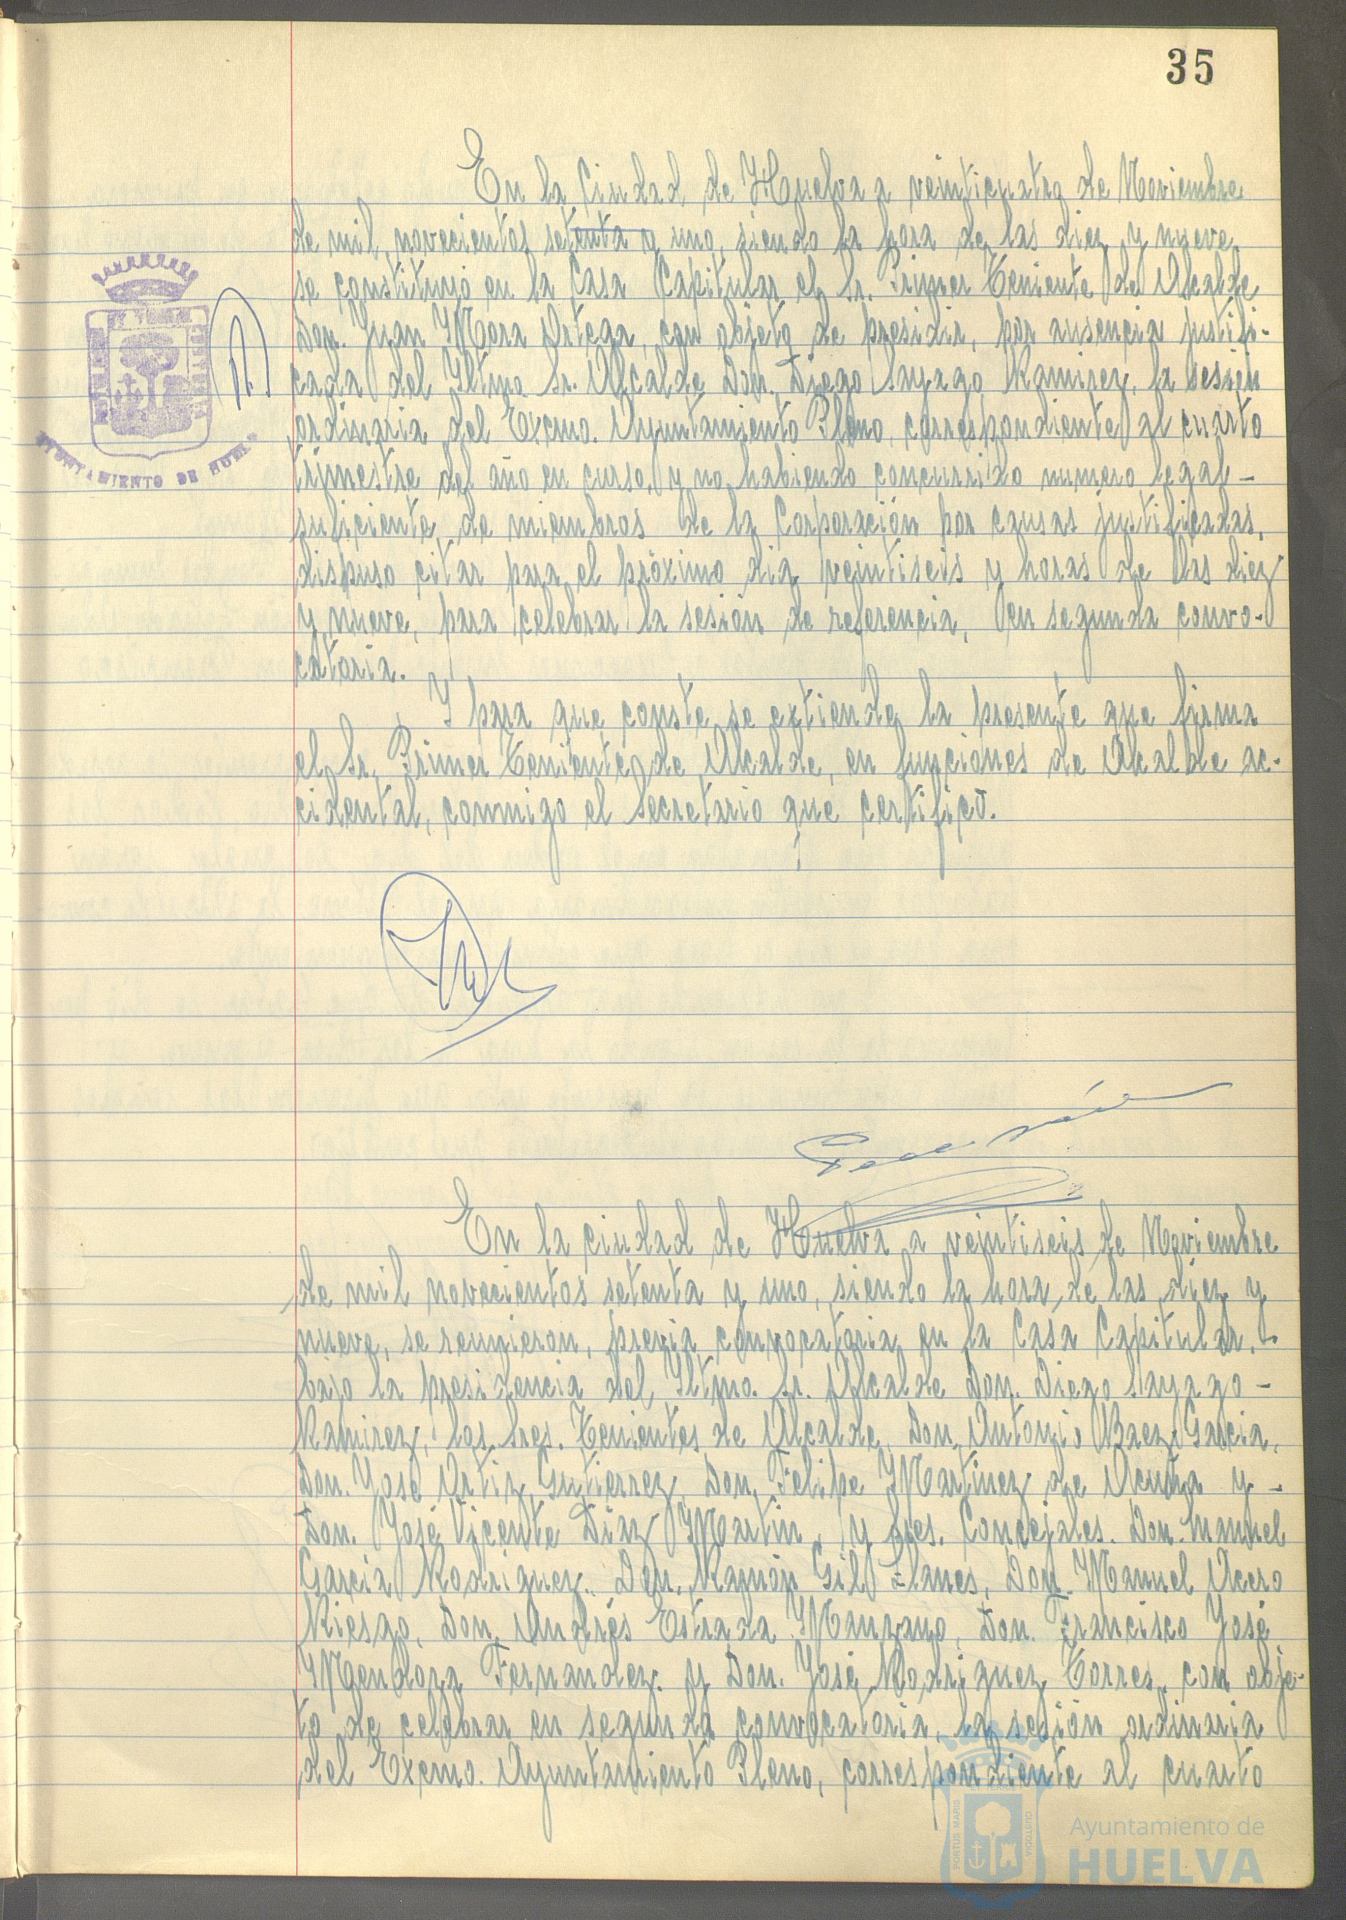 35
En la Ciudad de Huelva a veinticuatro de Noviembre
de mil novecientos setenta y uno, siendo la hora de las diez y nueve,
se constituyó en la Casa Capitular el Sr. Primer Teniente de Alcalde
Don. Juan Mora Ortega, con objeto de presidir, por ausencia justifi-
cada del Iltmo. Sr. Alcalde Don. Diego Sayago Ramirez, la sesión
ordinaria del Excmo. Ayuntamiento Pleno, correspondiente al cuarto
trimestre del año en curso, y no habiendo concurrido numero legal -
suficiente de miembros de la Corporación por causas justificadas,
dispuso citar para el próximo dia veintiseis y horas de las diez
y nueve, para celebrar la sesión de referencia, en segunda convo-
catoria.
Y para que conste se extiende la presente que firma
el Sr. Primer Teniente de Alcalde, en funciones de Alcalde ac-
cidental, conmigo el Secretario que certifico.
AYUNTAMIENTO DE HUELVA
En la ciudad de Huelva a veintiseis de Noviembre
de mil novecientos setenta y uno, siendo la hora de las diez y
nueve, se reunieron, previa convocatoria en la Casa Capitular,
bajo la presidencia del Iltmo. Sr. Alcalde Don. Diego Sayago -
Ramirez, los Sres. Tenientes de Alcalde, Don. Antonio Baez Garcia,
Don. José Ortiz Gutierrez, Don Felipe Martinez de Acuña y -
Don. José Vicente Diaz Martin, y Sres. Concejales. Don. Manuel
Garcia Rodriguez. Don. Ramón Gil Llanes, Don. Manuel Acero
Riesgo, Don. Andrés Estrada Manzano, Don. Francisco José
Mendoza Fernandez. y Don. José Rodriguez Torres, con obje-
to de celebrar en segunda convocatoria, la sesión ordinaria
del Excmo. Ayuntamiento Pleno, correspondiente al cuarto
PORTUS MARIS
CUSTODIA
Ayuntamiento de
HUELVA